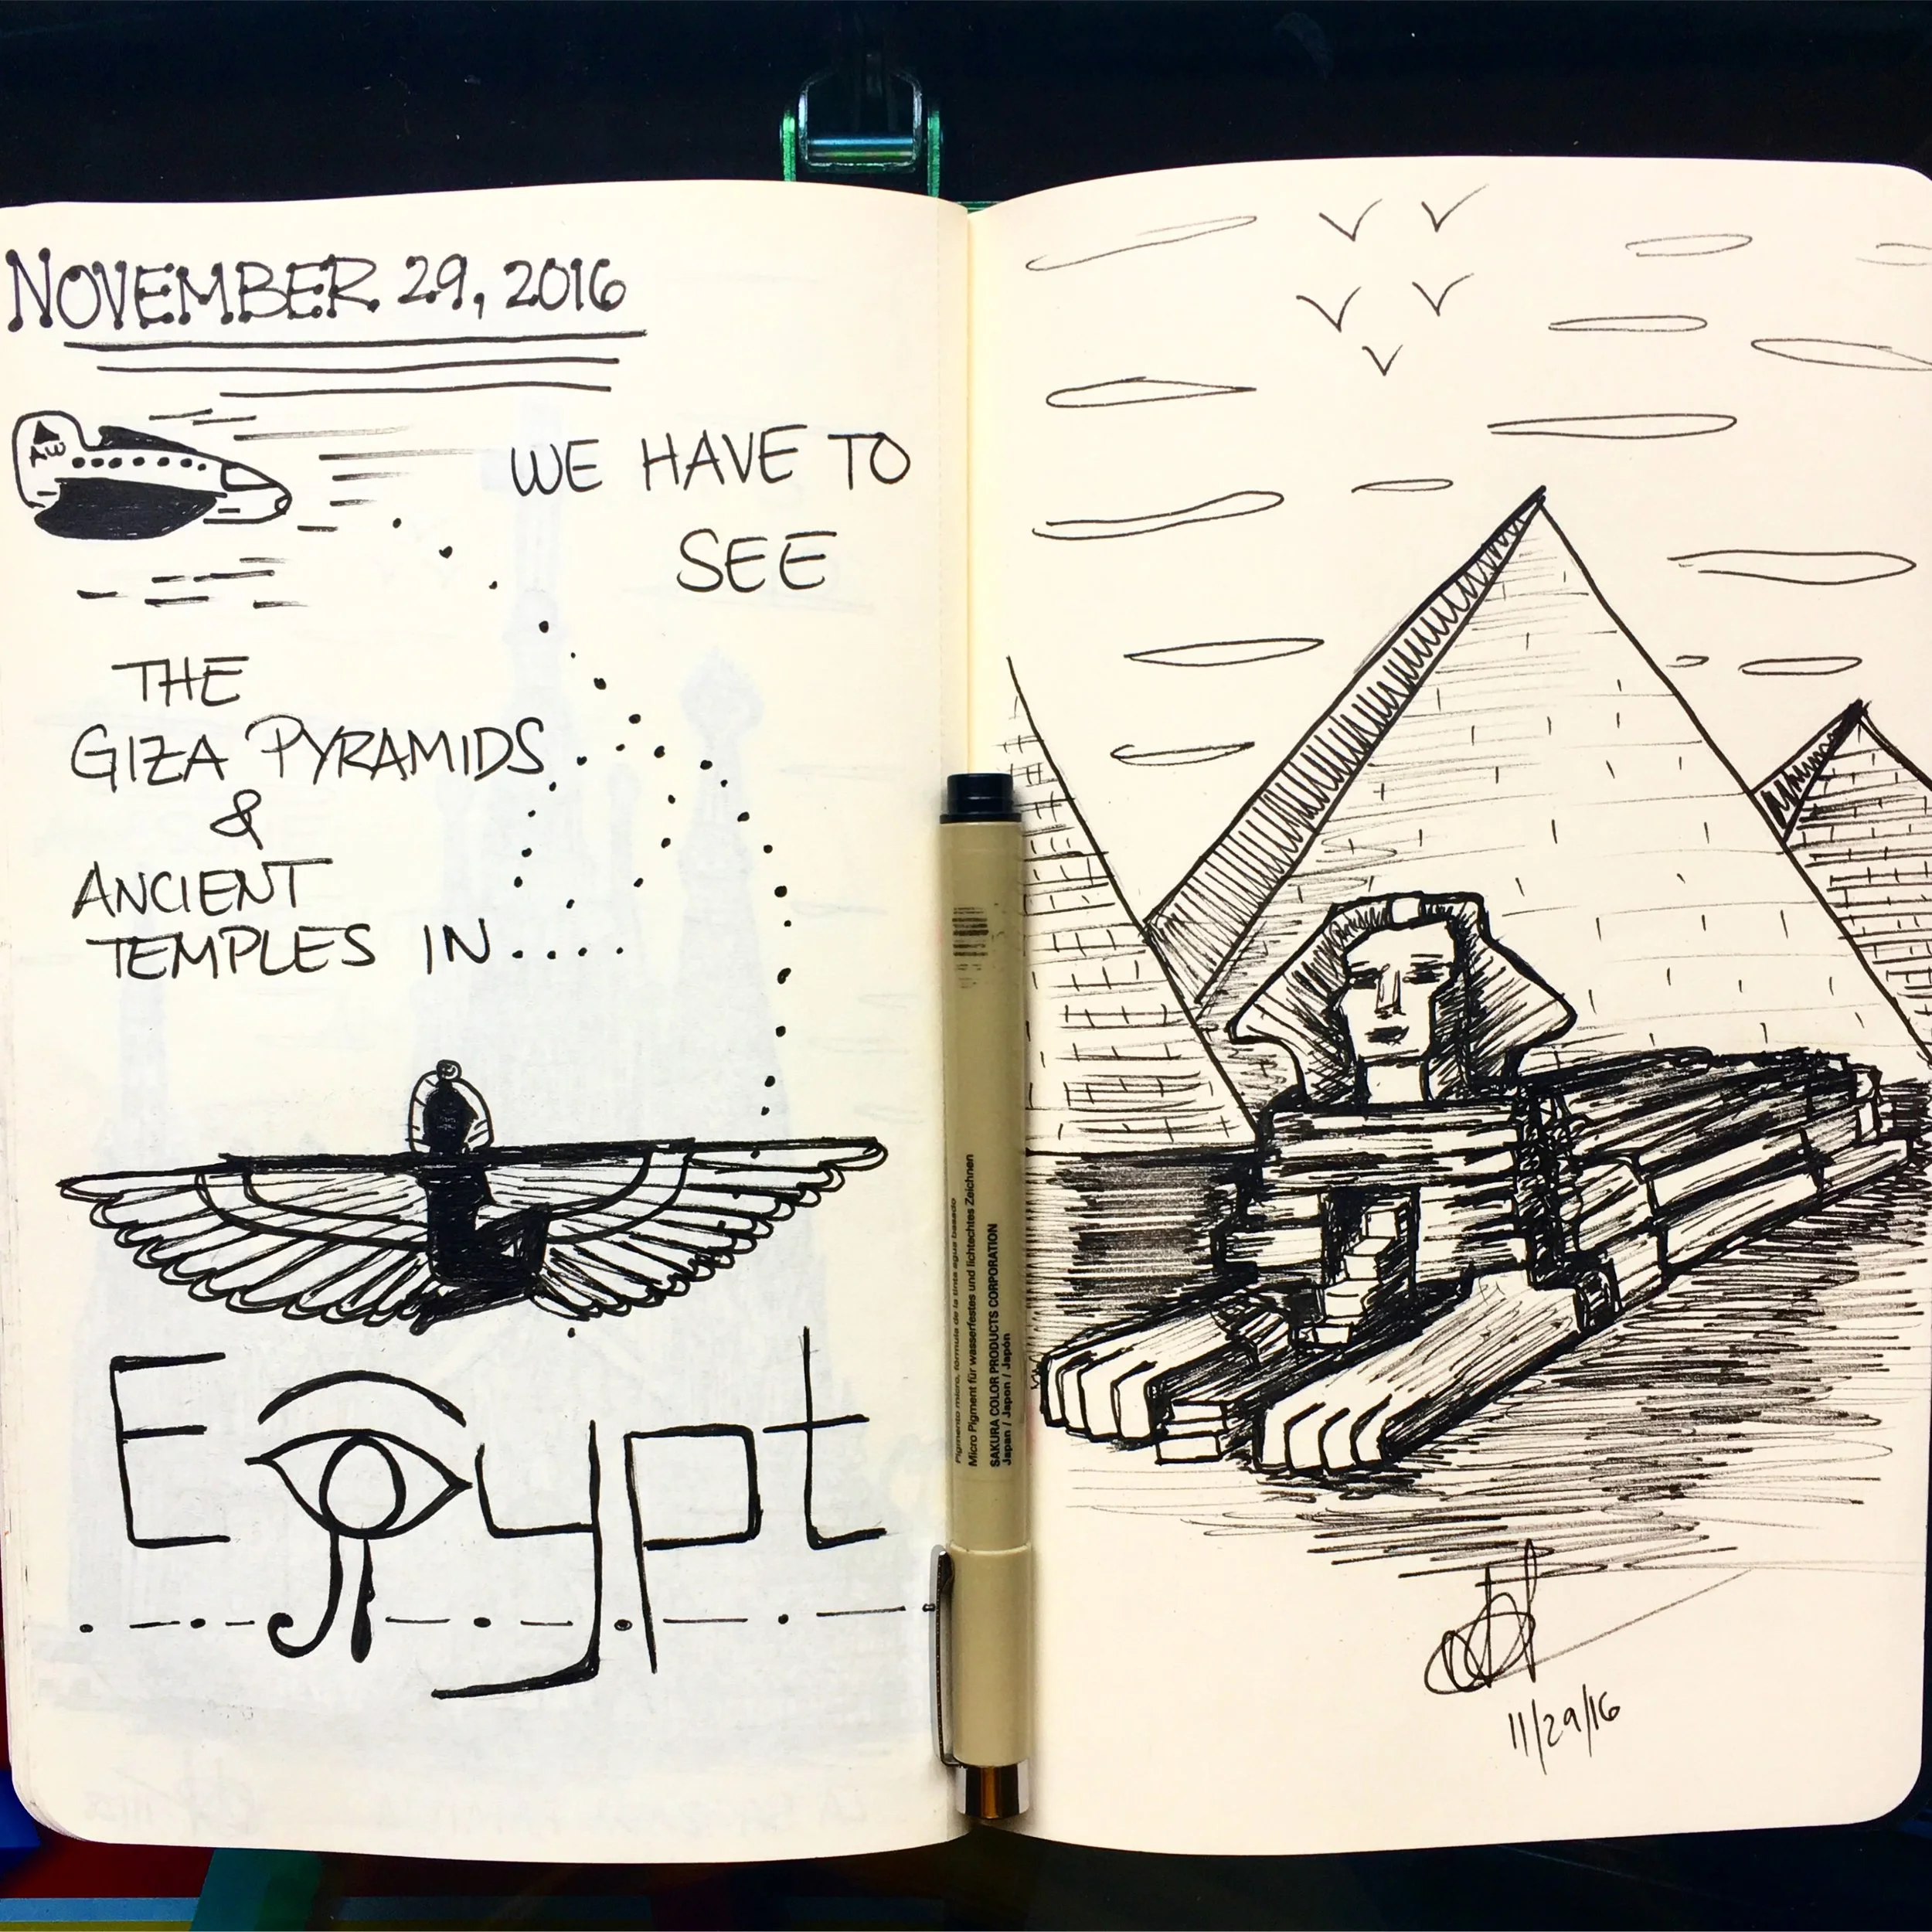 NOVEMBER 29, 2016
AW
WE HAVE TO
SEE
THE
GIZA PYRAMIDS
&
ANCIENT
TEMPLES IN....
Egypt
Micro Pigment für wasserfestes und lichtechtes Zeichnen
SAKURA COLOR PRODUCTS CORPORATION
Japan / Japon / Japón
11/29/16